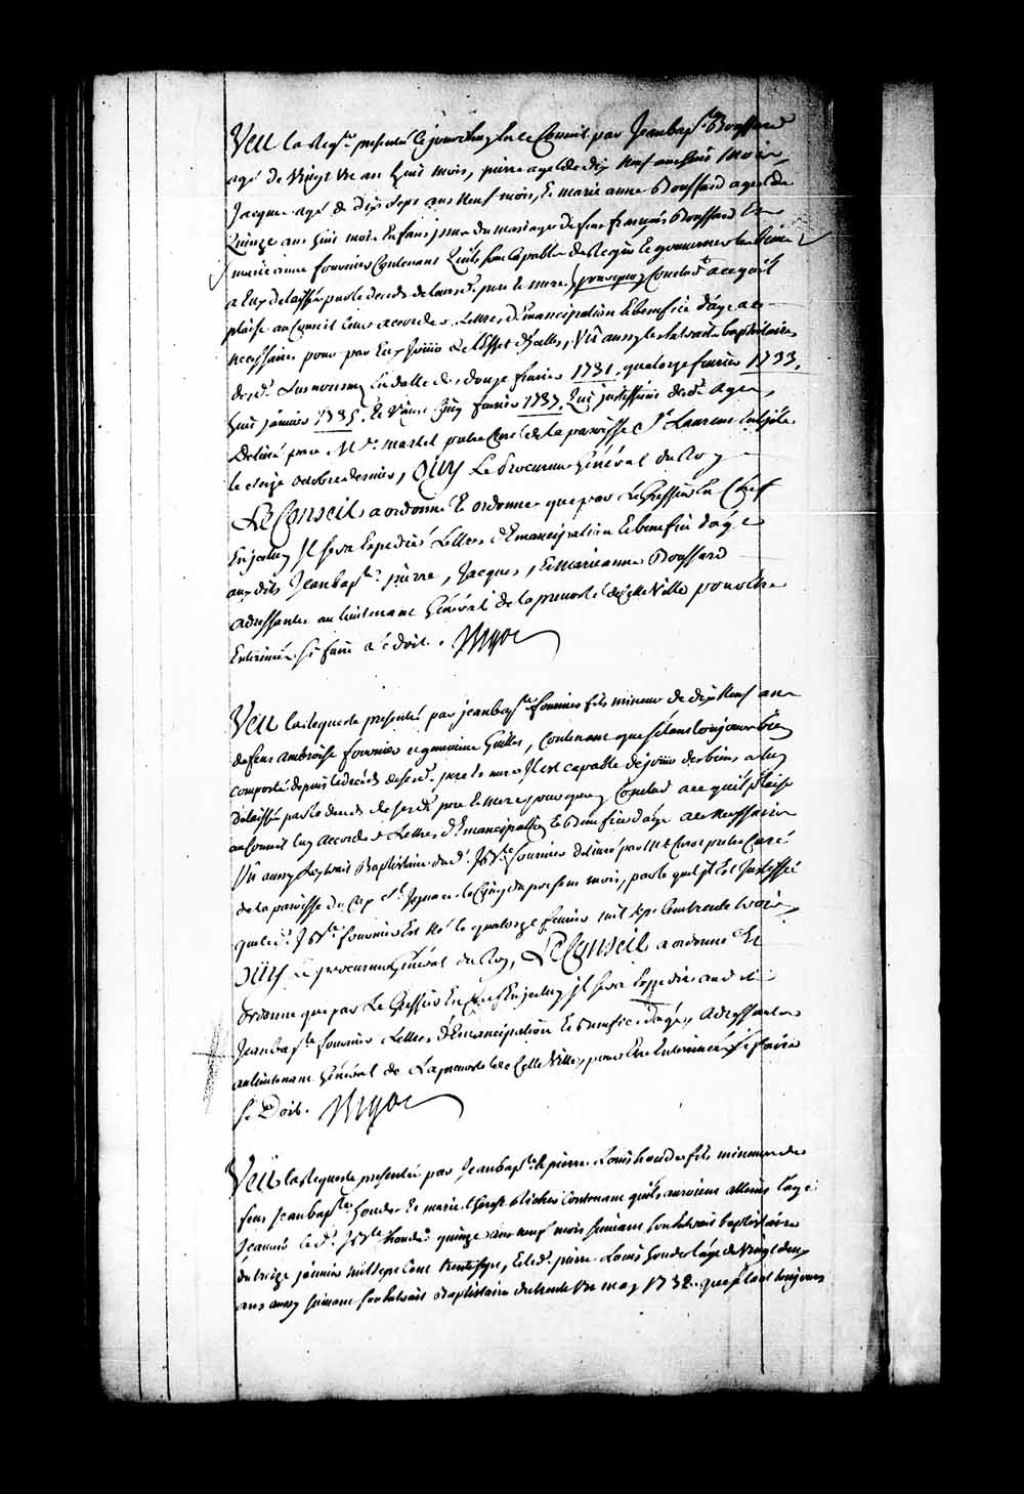 Veu la Reqte presenté ce jourdhuy en le Conseil par Jean bapte Boussard
agé de vingt un an huit mois, pierre agé de dix neuf ans mois
Jacque agé de dix sept ans neuf mois, Et marie anne Boussard agée de
quinze ans huit mois Enfans jssus du mariage de feu françois Boussard Et
marie anne fournier Contenant quils son Capable de Regir Et gouverner les biens
a Eux delaissé par le deceds de leursd. pere Et mere, pourquoy Conclud a ce quil
plaise au Conseil leur accorder Lettres d'Emancipation Et benefice d'age a ce
necessaires pour par Eux jouir de l'Effet d'jcelles, Vû aussy les Extraits baptistaires
desd. Susnommez En datte des douze fevrier 1731. quatorze fevrier 1733.
huit janvier 1735. Et vaint Cinq fevrier 1737. qui justiffient desd. ages,
Delivré par M. martel pretre Curé de la paroisse St Laurent
le seize octobre dernier, Oüy Le Procureur Général du Roy
Le Conseil a ordonné Et ordonne que par le Greffier En Chef
En jceluy Il sera Expedié Lettres d'Emancipation Et benefice d'age
auxdits Jean bapte, pierre, Jacques, Et marie anne Boussard
adressantes au lieutenant Général de la prevosté de cette Ville pour Etre
Enterinée si faire ce doit.
Veu la Requeste presenté par jean bapte fournier fils mineur de dix neuf ans
de feu ambroise fournier et genevieve Guillet, Contenant que s'étant toujours bien
comporté depuis le decés de sesd. pere Et mere Il est capable de jouir des biens a luy
delaissé par le deceds de sesd. pere Et mere, pourquoy Conclud a ce quil plaise
au Conseil luy accorder Lettres d'Emancipation Et benefice d'age a ce necessaires
Vû aussy L'extrait Baptistaire dud. J. Bte fournier delivré par Mr pretre Curé
de la paroisse du Cap St Ignace le Cinq du present mois, par le quel jl Est Justiffié
que led. J. Bte fournier Est né le quatorze fevrier mil sept Cent trente trois,
Oüy Le procureur Général du Roy, Le Conseil a ordonné Et
Ordonne que par Le Greffier En Chef En jceluy jl sera Expedié aud.
Jean bapte fournier Lettres d'Emancipation Et benefice d'age, adressantes
au lieutenant Général de La prevosté de Cette Ville, pour Etre Enterinée si faire
se Doit.
Veu la Requeste presentée par Jean bapte & pierre Louis houde fils mineurs de
feu Jean bapte houde Et marie Contenant quils auroient atteint l'age
scavoir led. J. Bte houde quinze ans neuf mois suivant son Extrait baptistaire
du treize janvier mil sept Cent trente sept, Et led. pierre Louis houde l'age de vingt deux
ans aussy suivant son Extrait Baptistaire du trente un may 1732. que s'étant toujours